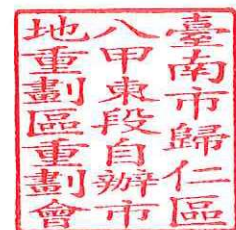 臺南市歸仁區
八甲東段自辦市
地重劃區重劃會